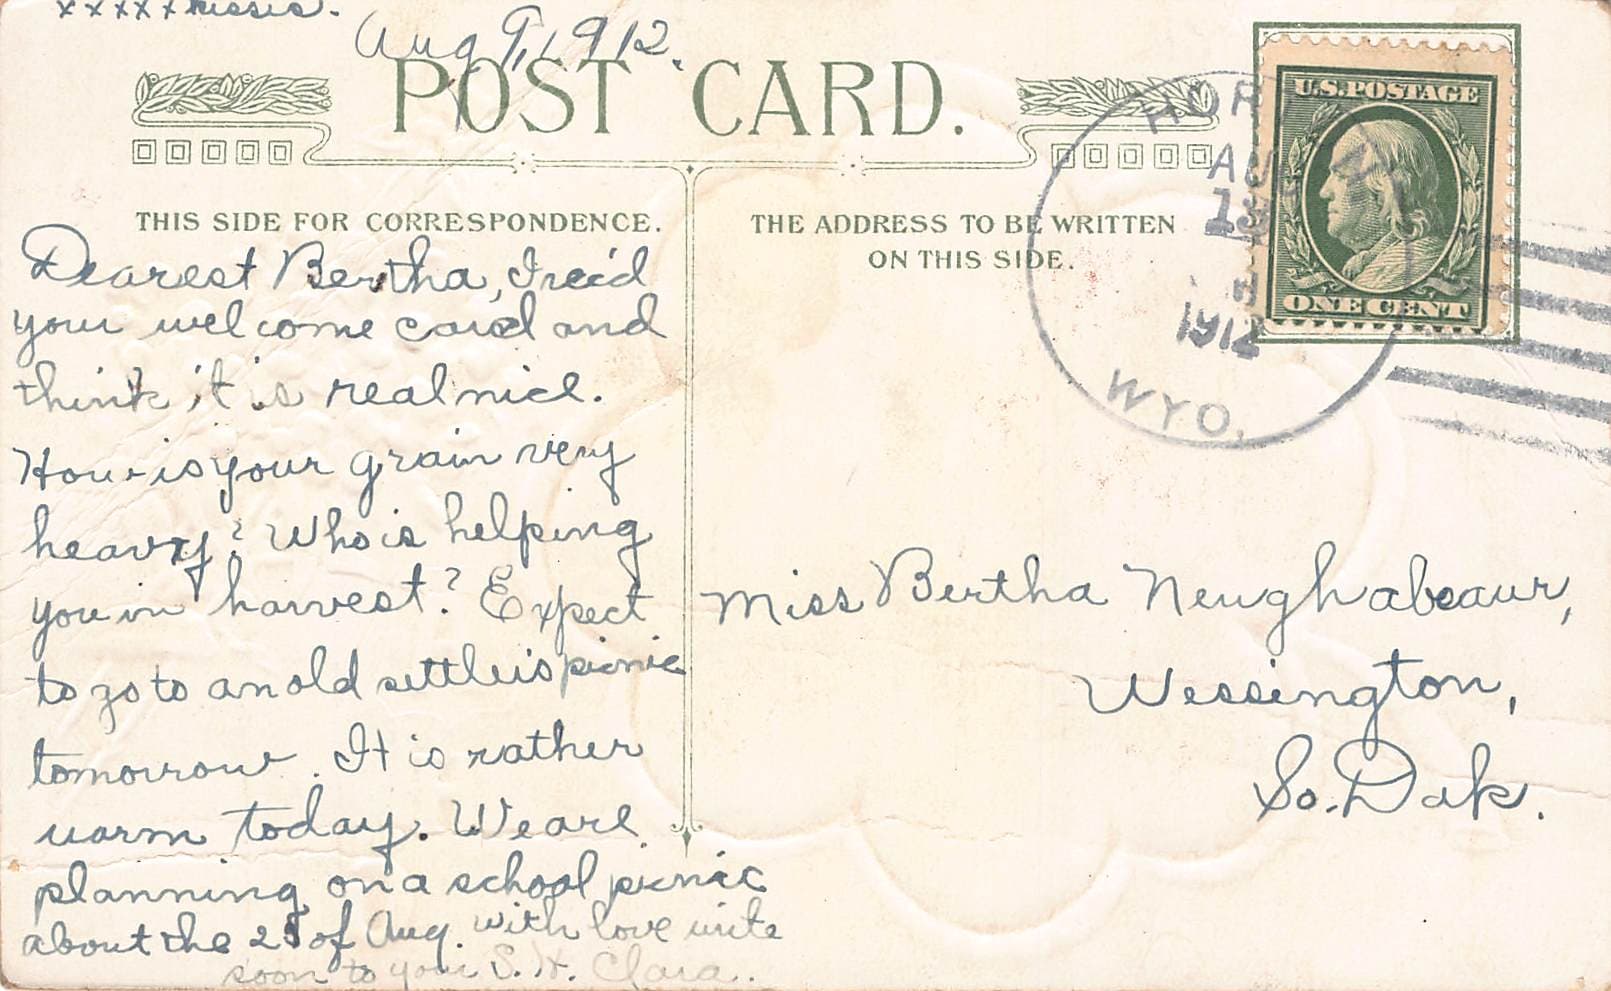 xxxxx kisses.
Aug 9, 1912.
POST CARD.
THIS SIDE FOR CORRESPONDENCE.
Dearest Bertha, I rec'd
your welcome card and
think it is real nice.
How is your grain very
heavy? Who is helping
you in harvest? Expect
to go to an old settler's picnic
tomorrow. It is rather
warm today. We are
planning on a school picnic
about the 25 of Aug. with love write
soon to your S. H. Clara.
THE ADDRESS TO BE WRITTEN
ON THIS SIDE.
U.S.POSTAGE
ONE CENT
AUG
13
1912
WYO.
Miss Bertha Neughabeaur,
Wessington,
So. Dak.